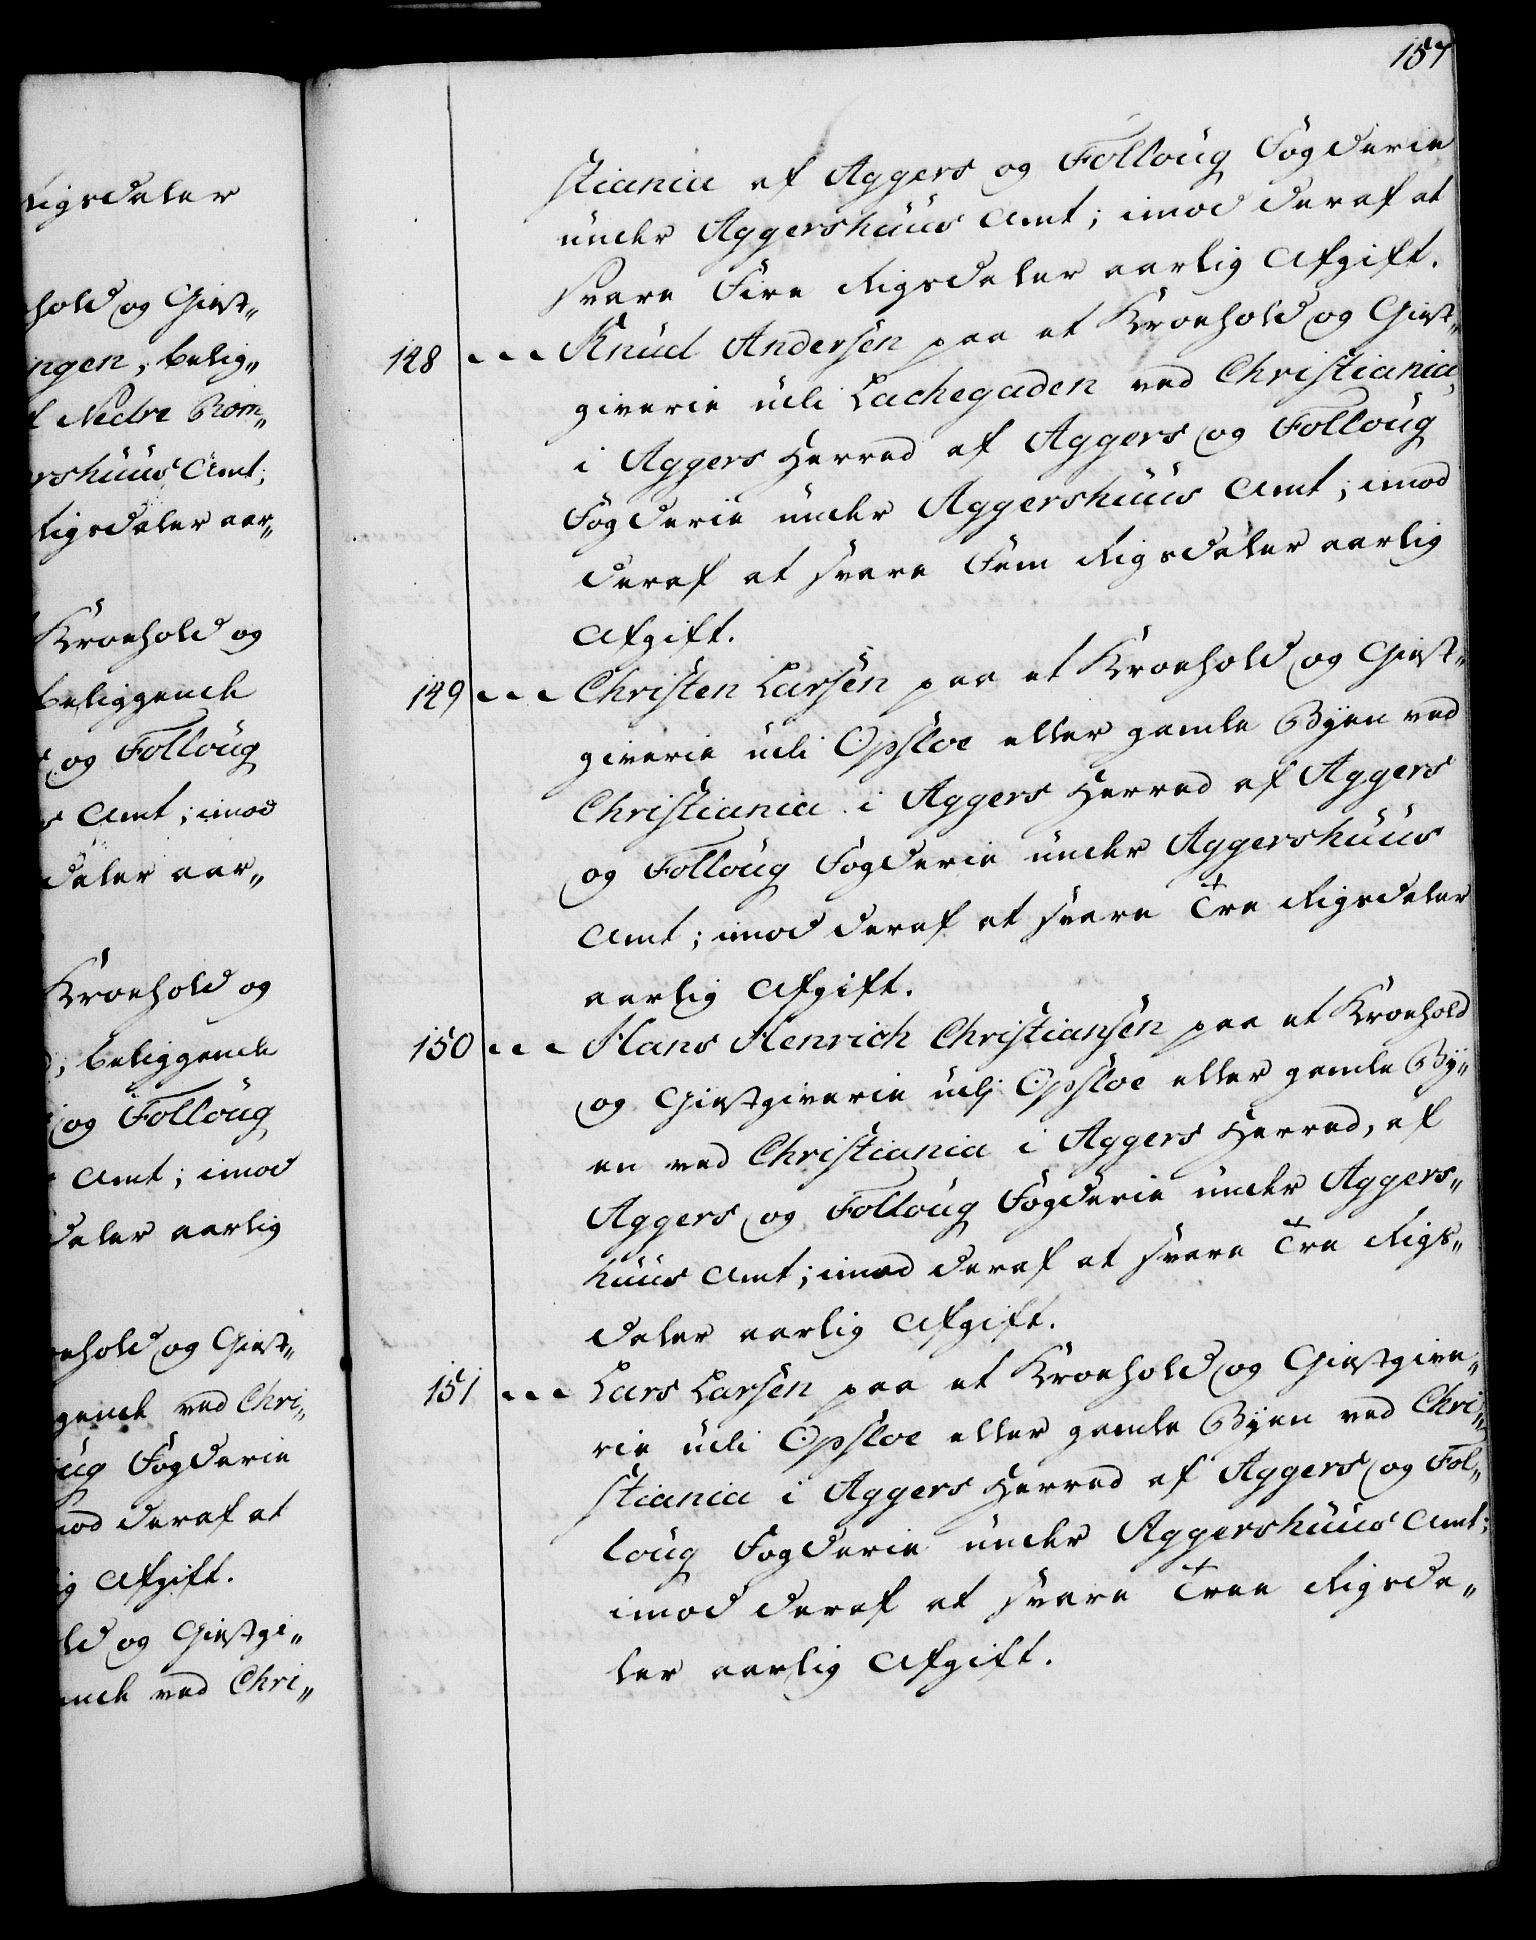 157
stiania af Aggers og Folloug Fogderie
under Aggershuus Amt; imod deraf at
svare Fire Rigsdaler aarlig Afgift.
148 - - - Knud Andersen paa et Kroehold og Giest„
giverie udi Lachegaden ved Christiania,
i Aggers Herred af Aggers og Folloug
Fogderie under Aggershuus Amt; imod
deraf at svare Fem Rigsdaler aarlig
Afgift.
149 - - - Christen Larsen paa et Kroehold og Giest„
giverie udi Opsloe eller gamle Byen ved
Christiania i Aggers Herred af Aggers
og Folloug Fogderie under Aggershuus
Amt; imod deraf at svare Tre Rigsdaler
aarlig Afgift.
150 - - - Hans Henrich Christiansen paa et Kroehold
og Giestgiverie udj Opsloe eller gamle By„
en ved Christiania i Aggers Herred, af
Aggers og Folloug Fogderie under Aggers„
huus Amt; imod deraf at svare Tre Rigs„
daler aarlig Afgift.
151 - - - Lars Larsen paa et Kroehold og Giestgive„
rie udi Opsloe eller gamle Byen ved Chri„
stiania i Aggers Herred af Aggers og Fol„
loug Fogderie under Aggershuus Amt;
imod deraf at svare Tree Rigsda„
ler aarlig Afgift.
Rigsdaler
hold og Giest„
ngen, belig„
Nedre Rom„
rshuus Amt;
Rigsdaler aar„
Kroehold og
beliggende
og Folloug
Amt; imod
daler aar„
Kroehold og
beliggende
og Folloug
Amt; imod
daler aarlig
ehold og Giest„
gende ved Chri„
oug Fogderie
mod deraf at
ig Afgift.
ld og Giestgi„
ende ved Chri„